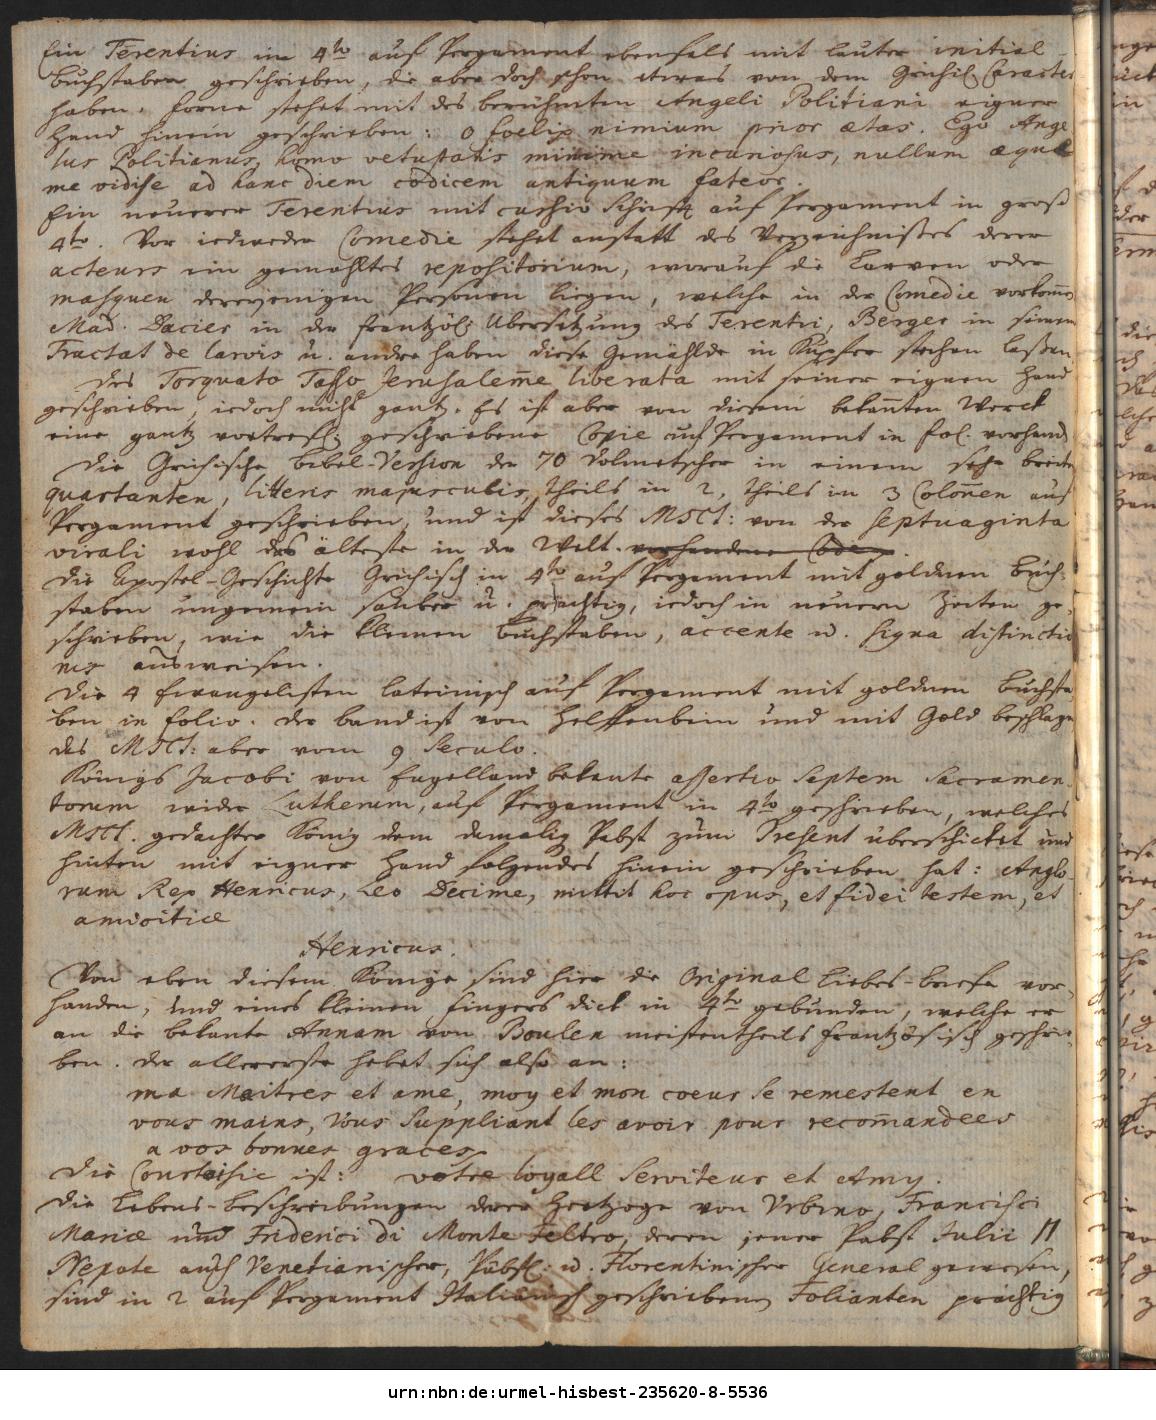 Ein Terentius in 4to auf Pergament ebenfals mit lauter initial-
buchstaben geschrieben, die aber doch schon etwas von dem Grichis. Caracter
haben. forne stehet mit des berühmten Angeli Politiani eigner
hand hinein geschrieben: O foelix nimium prior ætas. Ego Ange
lus Politianus, homo vetustatis minime incuriosus, nullum æque
me vidisse ad hanc diem codicem antiquum fateor.
Ein neuerer Terentius mit cursiv Schrift auf Pergament in groß
4to. Vor iedweder Comedie stehet anstatt des Verzeichnißes derer
acteurs ein gemahltes repositorium, worauf die Larven oder
masquen derienigen Personen liegen, welche in der Comedie vorkomen
Mad. Dacier in der frantzös. Ubersetzung des Terentii, Berger in seinem
Tractat de larvis u. andre haben diese Gemählde in Kupfer stechen laßen.
Des Torquato Tasso Jerusaleme liberata mit seiner eignen hand
geschrieben, iedoch nicht gantz. Es ist aber von diesem bekanten Werck
eine gantz vortrefl. geschriebene Copie auf Pergament in fol. vorhand
Die Grichische Bibel-Version der 70 Dolmetscher in einem sehr breiten
quartanten, litteris majusculis, theils in 2, theils in 3 Colonen auf
Pergament geschrieben, und ist dieses MSCt: von der septuaginta
virali wohl das älteste in der Welt. vorhandene Codex.
Die Apostel-Geschichte Grichisch in 4to auf Pergament mit goldnen buch-
staben ungemein sauber u. prächtig, iedoch in neuern Zeiten ge-
schrieben, wie die kleinen buchstaben, accente u. signa distinctio
nis ausweisen.
Die 4 Evangelisten lateinisch auf Pergament mit goldnen buchsta
ben in folio. der band ist von Helffenbein und mit Gold beschlagn
das MSCt: aber vom 9 Seculo.
Königs Jacobi von Engelland bekante assertio septem Sacramen-
torum wider Lutherum, auf Pergament in 4to geschrieben, welches
MSCt. gedachter König dem damalig Pabst zum Present überschicket und
hinten mit eigner hand folgendes hinein geschrieben hat: Anglo-
rum Rex Henricus, Leo Decime, mittit hoc opus, et fidei testem, et
amicitiæ
Henricus.
Von eben diesem Könige sind hier die Original liebes-briefe vor-
handen, und eines kleinen fingers dick in 4to gebunden, welche er
an die bekante Annam von Boulen meistentheils frantzösisch geschrie-
ben. der allererste hebet sich also an:
ma Maitres et ame, moy et mon coeur se remestent en
vous mains, vous suppliant les avoir pour recomandees
a vos bonnes graces
Die Courtoisie ist: votre loyall Serviteur et Amy.
Die Lebens-beschreibungen derer Hertzoge von Urbino, Francisci
Mariæ und Friderici di Monte Feltro, deren jener Pabst Julii II
Nepote auch Venetianischer, Päbstl. u. Florentinischer General gewesen,
sind in 2 auf Pergament Italianisch geschriebenen Folianten prächtig
urn:nbn:de:urmel-hisbest-235620-8-5536